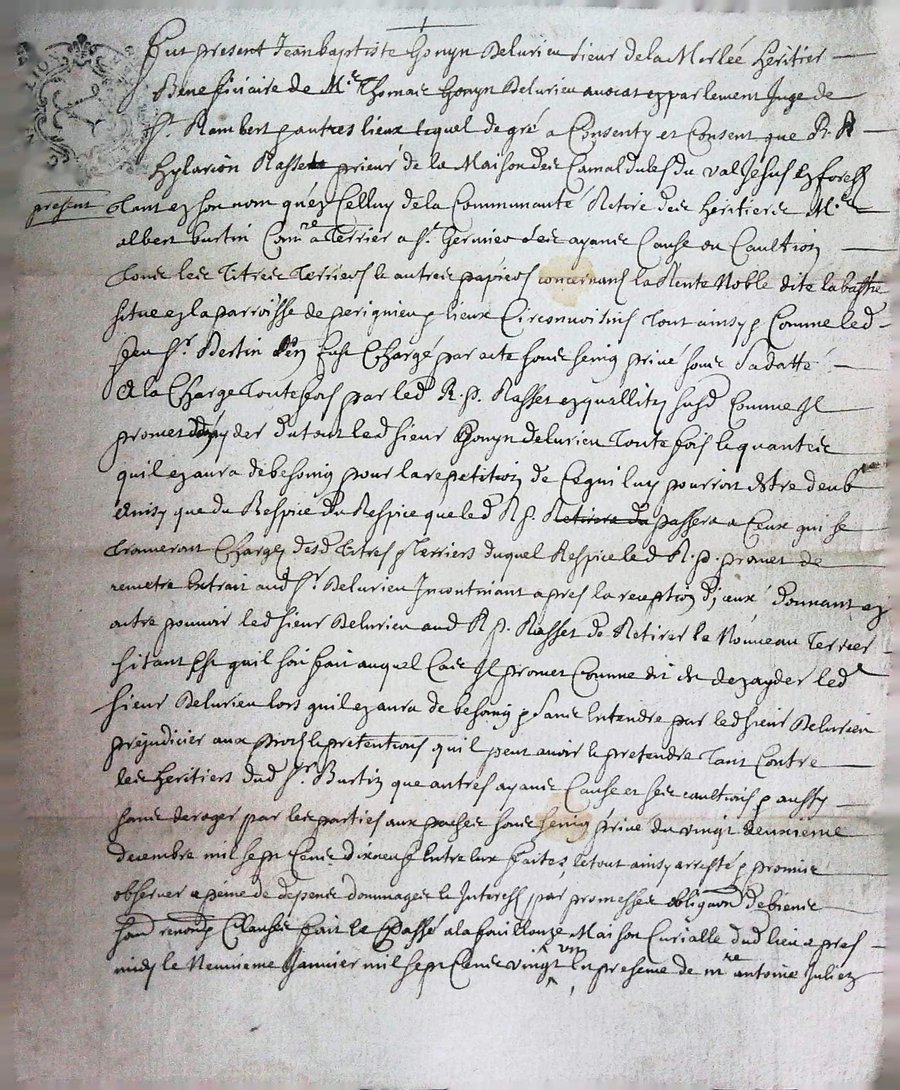 Fut present Jean baptiste Gonyn Delurieu sieur de la Merlée heritier
Beneficiaire de Mre Thomas Gonyn Delurieu avocat en parlement Juge de
St. Rambert & autres lieux lequel de gré a Consenty et Consent que R. P.
hylarion Rasset prieur de la Maison des Camaldules du val Jesus en forest
present
tant en son nom qu'en Celluy de la Communauté Retire des heritiers Mre
albert burtin Comre a Terrier a St. Germier ses ayans Cause ou Caution
tous les Titres Terriers & autres papiers concernans la Rente Noble dite la
situe en la parroisse de perignieu & lieux Circonvoisins tout ainsy & Comme led
feu Sr. Bertin s'en fust Chargé par acte sous seing privé sous sa datte
A la Charge toutefois par led R. p. Rasset en quallites susd Comme Il
promet dayder du tout led sieur Gonyn delurieu toutefois & quantes
quil en aura de besoing pour la repetition de Ce qui luy pourroit Estre deub
Ainsy que du Respice du Respice que led R. p. Retirera du passera a Ceux qui se
trouveront Charges desd titres & terriers duquel Respice led R. p. promet de
remetre Extrait aud Sr. Delurieu Incontinant apres la reception d'jceux donnant en
outre pouvoir led sieur Delurieu aud R. p. Rasset de Retirer le Nouveau Terrier
sitant Est quil soit fait auquel Cas Il promet Comme dit est de den ayder led
sieur Delurieu lors quil en aura de besoing & sans Entendre par led sieur Delurieu
prejudicier aux & pretentions quil peut avoir & pretendre tant Contre
les heritiers dud Sr. Burtin que autres ayans Cause et ses cautions & aussy
sans deroger par les parties aux sous seing prive du vingt deuxieme
decembre mil sept Cens dixneuf Entre Eux faites, & tout ainsy arresté & promis
observer a peine de depens dommages & Interest par promesses obligaon de biens
soub renonc Clauses fait & Passé a la fouillouze Maison Curialle dud lieu apres
midy le Neuvieme Janvier mil sept Cens vingt un En presence de mre antoine Julien